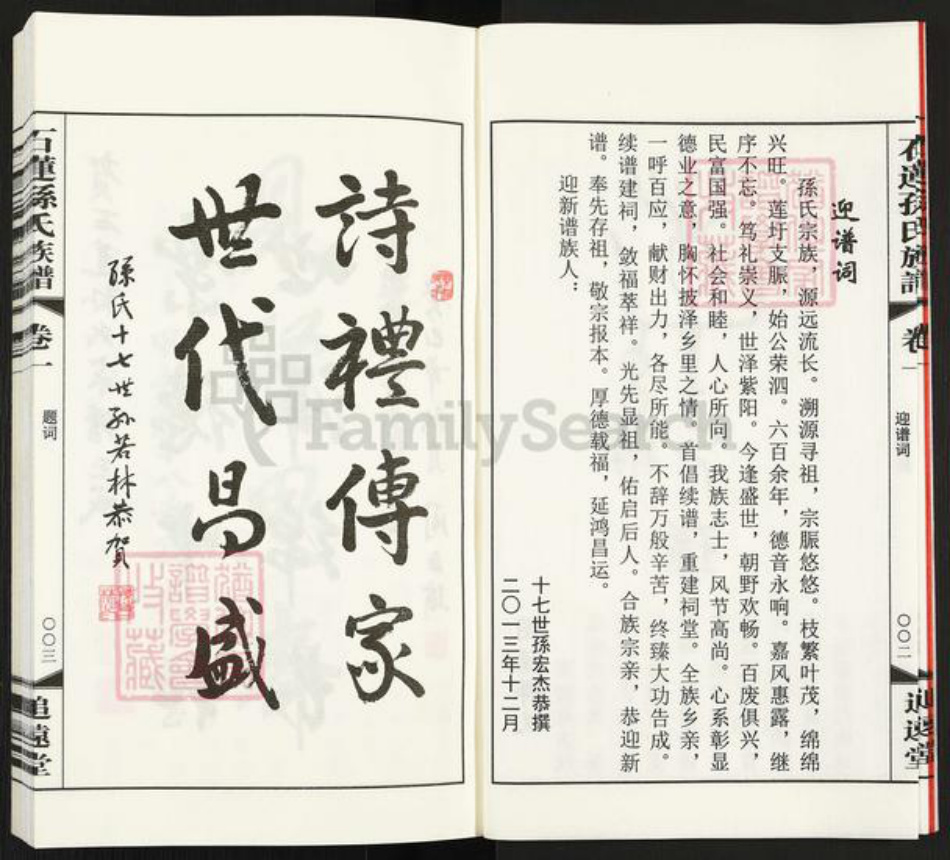 石蓮孫氏族譜
卷一
迎谱词
〇〇二
追遠堂
迎谱词
孫氏宗族，源远流长。溯源寻祖，宗脤悠悠。枝繁叶茂，绵绵
兴旺。莲圩支脈，始公荣泗。六百余年，德音永响。嘉风惠露，继
序不忘。笃礼崇义，世泽紫阳。今逢盛世，朝野欢畅。百废俱兴，
民富国强。社会和睦，人心所向。我族志士，风节高尚。心系彰显
德业之意，胸怀披泽乡里之情。首倡续谱，重建祠堂。全族乡亲，
一呼百应，献财出力，各尽所能。不辞万般辛苦，终臻大功告成。
续谱建祠，敛福萃祥。光先显祖，佑启后人。合族宗亲，恭迎新
谱。奉先存祖，敬宗报本。厚德载福，延鸿昌运。
迎新谱族人：
十七世孫宏杰恭撰
二〇一三年十二月
詩禮傳家
世代昌盛
孫氏十七世孙若林恭贺
石蓮孫氏族譜
卷一
题词
〇〇三
追遠堂
FamilySearch